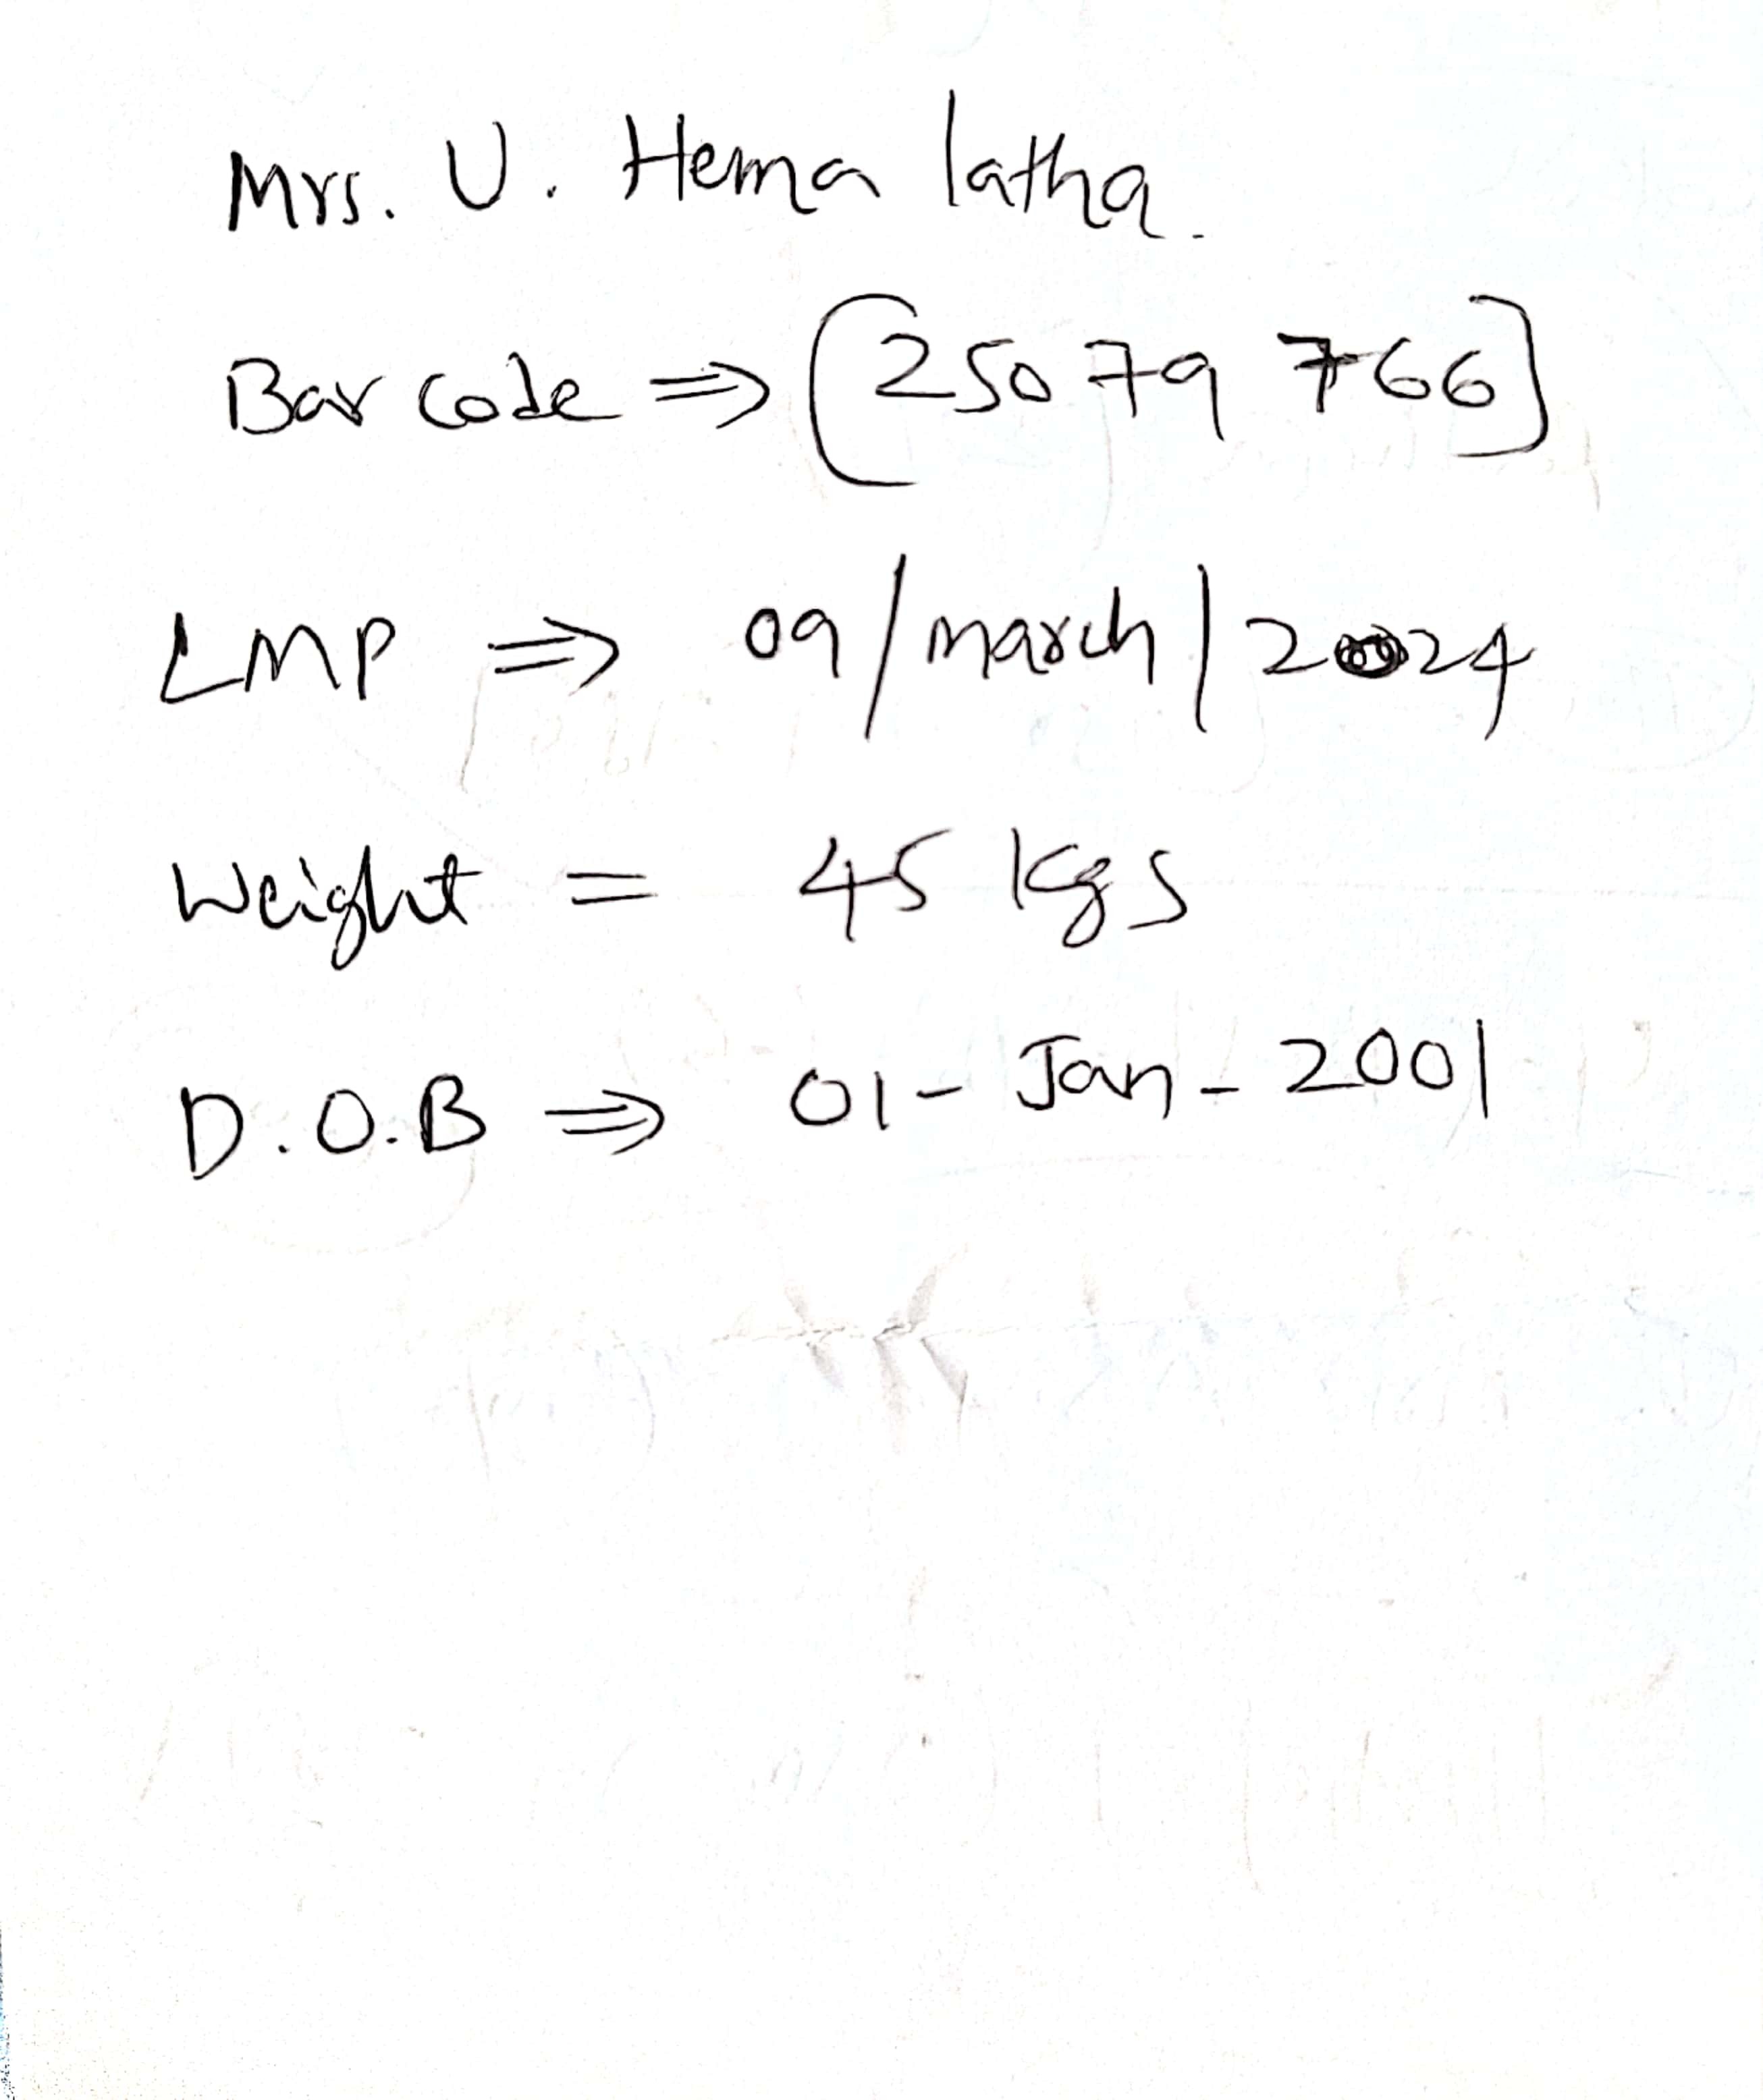 Mrs. U. Hema latha.
Bar code ⇒ [25079766]
LMP ⇒ 09/march/2024
Weight = 45 Kgs
D.O.B ⇒ 01-Jan-2001